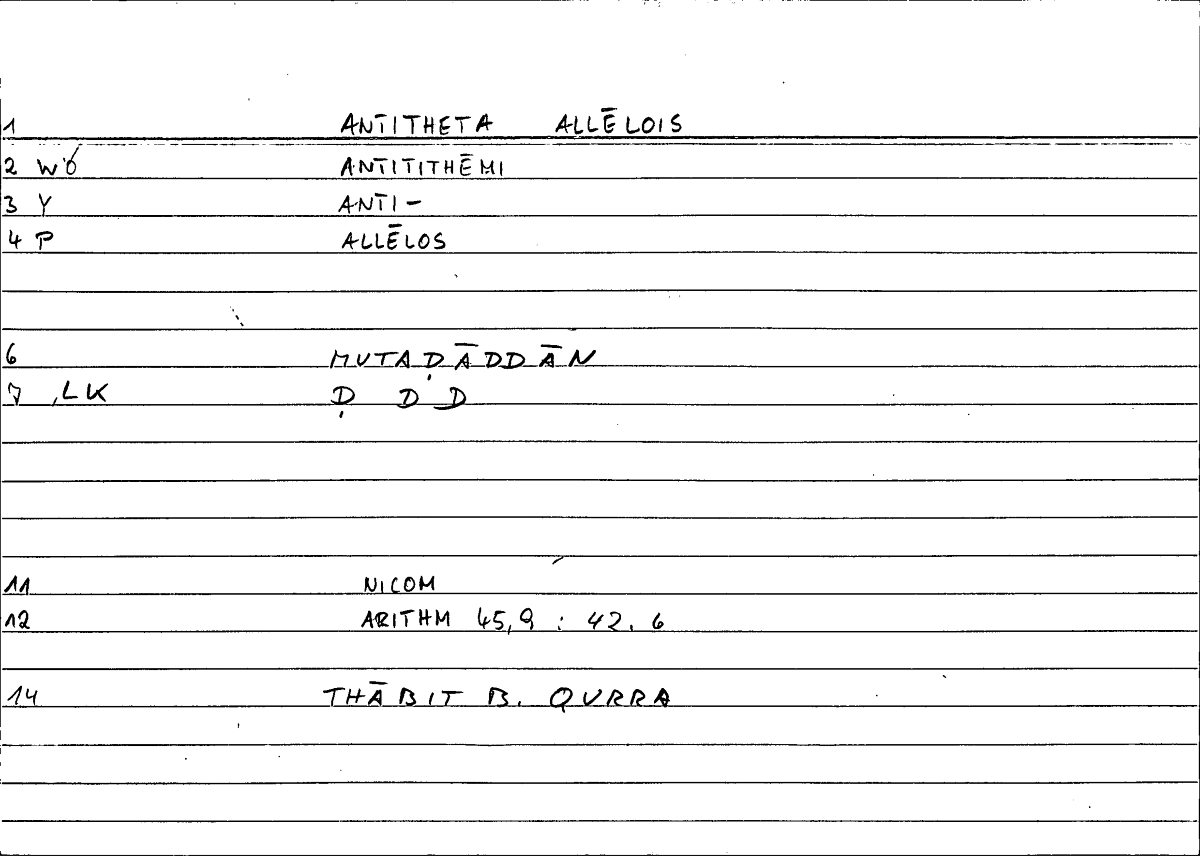 1 ANTITHETA ALLĒLOIS
2 WÓ ANTITITHĒMI
3 Y ANTI-
4 P ALLĒLOS
6 MUTAḌĀDDĀN
7 ,LK Ḍ D D
11 NICOM
12 ARITHM 45,9 : 42. 6
14 THĀBIT B. QURRA